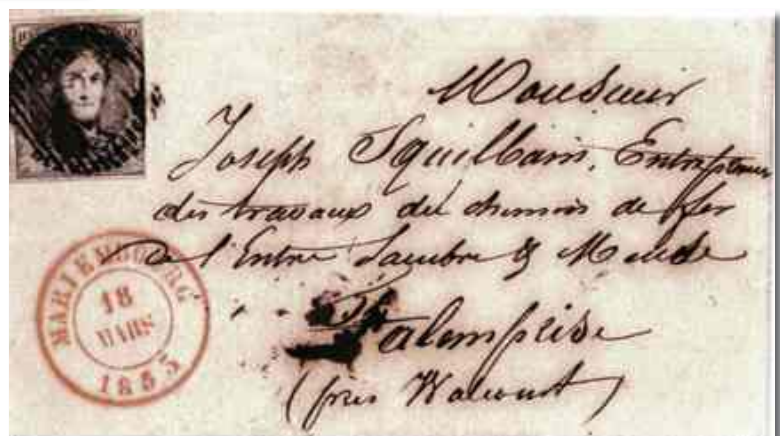 Monsieur
Joseph Squilbain, Entrepreneur
des travaux du chemin de fer
de l'Entre Sambre & Meuse
Yalemprise
(près Walcourt)
MARIEMBOURG
18
MARS
1853